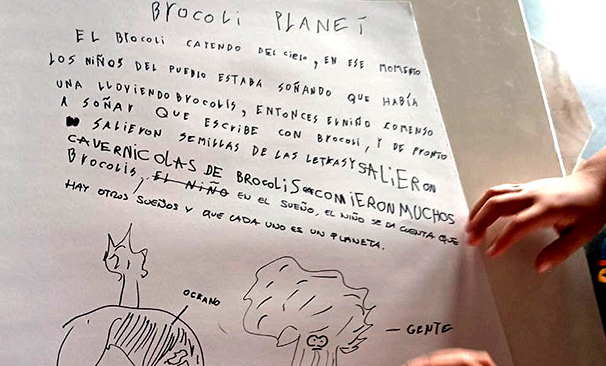 BROCOLI PLANET
EL BROCOLI CAYENDO DEL CIELO, EN ESE MOMENTO
LOS NIÑOS DEL PUEBLO ESTABA SOÑANDO QUE HABÍA
UNA LLOVIENDO BROCOLIS, ENTONCES EL NIÑO COMENSO
A SOÑAR QUE ESCRIBE CON BROCOLI, Y DE PRONTO
SALIERON SEMILLAS DE LAS LETRAS Y SALIERON
CAVERNICOLAS DE BROCOLIS COMIERON MUCHOS
BROCOLIS, EL NIÑO EN EL SUEÑO, EL NIÑO SE DA CUENTA QUE
HAY OTROS SUEÑOS Y QUE CADA UNO ES UN PLANETA.
OCEANO
GENTE